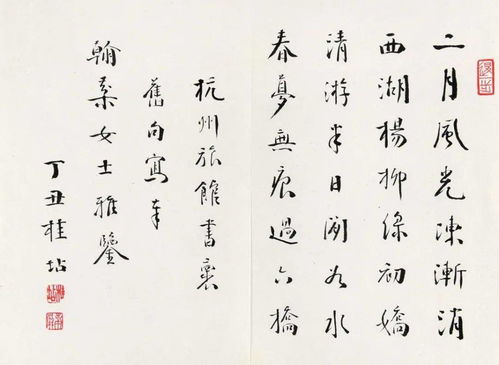 二月風光凍漸消
西湖楊柳綠初嬌
清游半日閒水
春夢無痕過六橋
杭州旅館書褱
舊句寫奉
翰女士雅鑒
丁丑桂坫